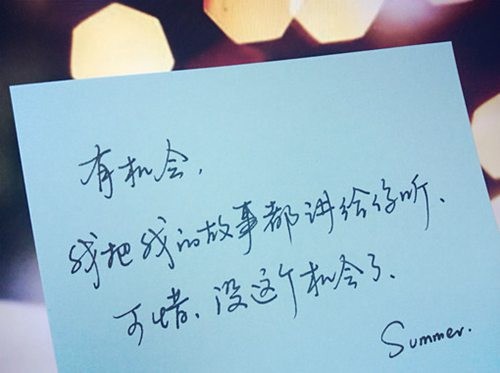 有机会,
我把我的故事都讲给你听.
可惜.没这个机会了.
Summer.